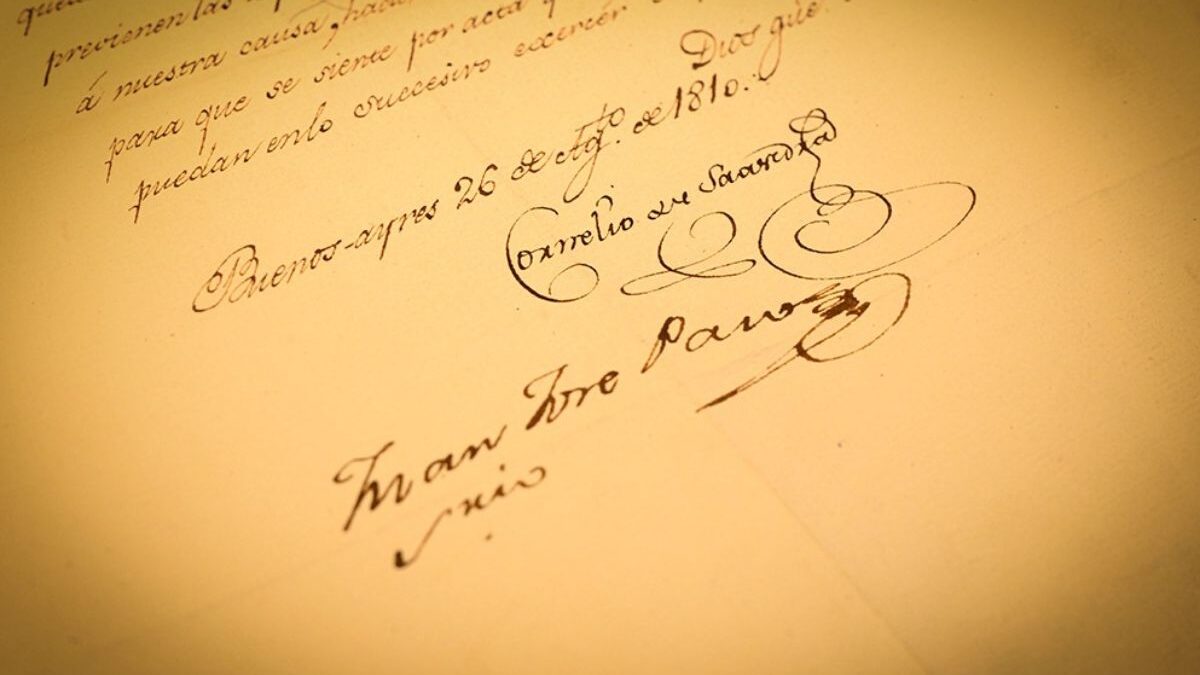 previenen las
á nuestra causa, hacien
para que se siente por acta
puedan enlo succesivo exercér
Dios gúe.
Buenos-ayres 26 de Agto. de 1810.
Cornelio de Saavedra
Juan Jose Passo
Srio